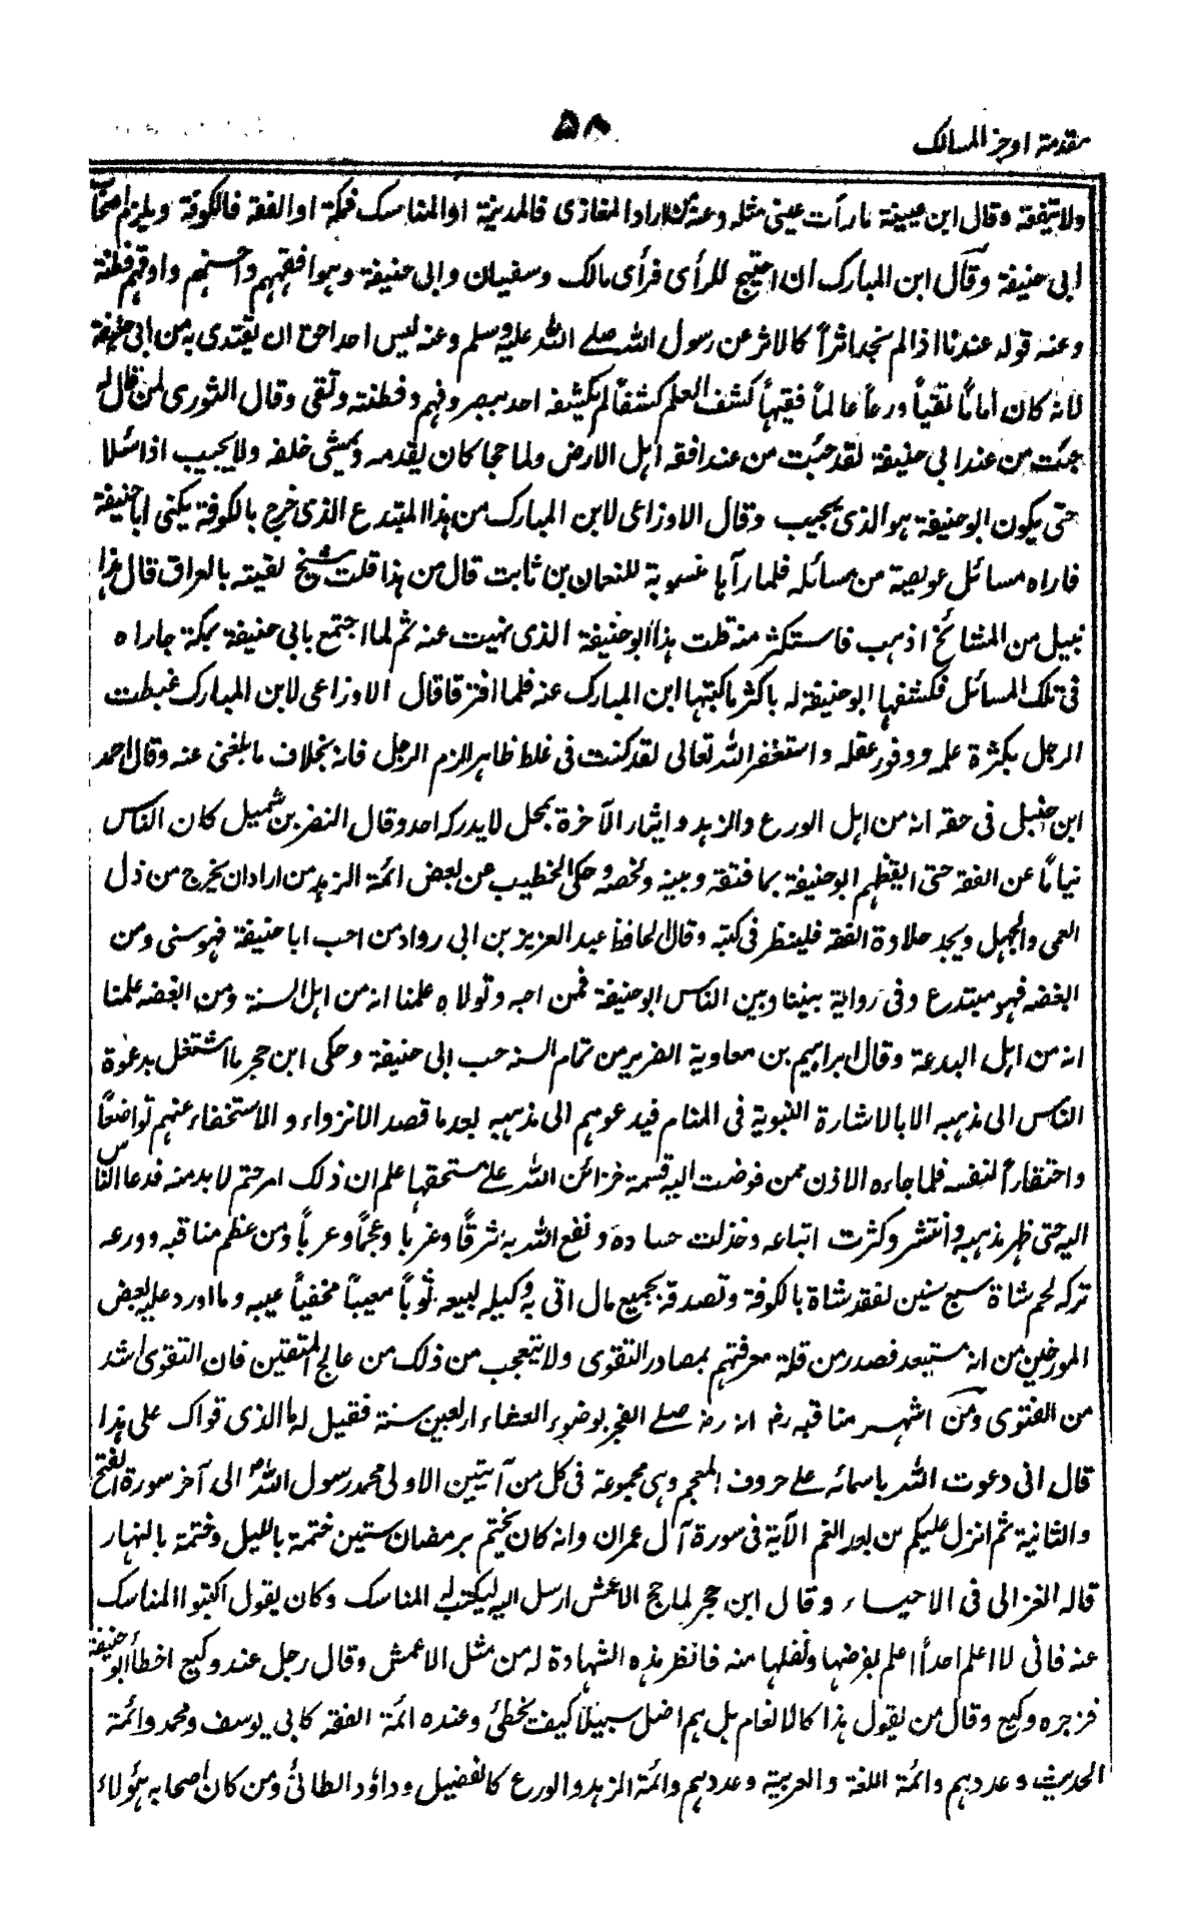 مقدمة اوجز المسالک
۵۸
ولا تیفقه وقال ابن عیینة ما رأت عینی مثله وعنه من اراد المغازی فالمدینة او المناسک فمکة او الفقه فالکوفة ویلزم اصحاب
ابی حنیفة وقال ابن المبارک ان احتیج للرأی فرأی مالک وسفیان وابی حنیفة وهو افقههم واحسنهم وادقهم فطنة
وعنه قوله عندنا اذا لم نجد اثراً کالاثر عن رسول الله صلی الله علیه وسلم وعنه لیس احد احق ان یقتدی به من ابی حنیفة
لانه کان اماماً تقیاً ورعاً عالماً فقیهاً کشف العلم کشفاً لم یکشفه احد ببصر وفهم وفطنته وتقی وقال الثوری لمن قال له
جئت من عند ابی حنیفة لقد جئت من عند افقه اهل الارض ولما حجا کان یقدمه ویمشی خلفه ولا یجیب اذا سئلا
حتی یکون ابو حنیفة هو الذی یجیب وقال الاوزاعی لابن المبارک من هذا المبتدع الذی خرج بالکوفة یکنی ابا حنیفة
فاراه مسائل عویصة من مسائله فلما رآها منسوبة للنعمان بن ثابت قال من هذا قلت شیخ لقیته بالعراق قال هذا
نبیل من المشائخ اذهب فاستکثر منه قلت هذا ابو حنیفة الذی نهیت عنه ثم لما اجتمع بابی حنیفة بمکة جاراه
فی تلک المسائل فکشفها ابو حنیفة له باکثر ما کتبها ابن المبارک عنه فلما افترقا قال الاوزاعی لابن المبارک غبطت
الرجل بکثرة علمه ووفور عقله واستغفر الله تعالی لقد کنت فی غلط ظاهر الزم الرجل فانه بخلاف ما بلغنی عنه وقال احمد
ابن حنبل فی حقه انه من اهل الورع والزهد وایثار الآخرة بمحل لا یدرکه احد وقال النضر بن شمیل کان الناس
نیاماً عن الفقه حتی ایقظهم ابو حنیفة بما فتقه وبینه ولخصه وحکی الخطیب عن بعض ائمة الزهد من اراد ان یخرج من ذل
العمی والجهل ویجد حلاوة الفقه فلینظر فی کتبه وقال الحافظ عبد العزیز بن ابی رواد من احب ابا حنیفة فهو سنی ومن
ابغضه فهو مبتدع وفی روایة بیننا وبین الناس ابو حنیفة فمن احبه وتولاه علمنا انه من اهل السنة ومن ابغضه علمنا
انه من اهل البدعة وقال ابراهیم بن معاویة الضریر من تمام السنة حب ابی حنیفة وحکی ابن حجر ما اشتغل بدعوة
الناس الی مذهبه الا بالاشارة النبویة فی المنام فیدعوهم الی مذهبه بعد ما قصد الانزواء والاستخفاء عنهم تواضعاً
واحتقاراً لنفسه فلما جاءه الاذن ممن فوضت الیه قسمة خزائن الله علی مستحقها علم ان ذلک امر حتم لا بد منه فدعا الناس
الیه حتی ظهر مذهبه وانتشر وکثرت اتباعه وخذلت حساده ونفع الله به شرقاً وغربا وعجماً وعرباً ومن عظم مناقبه وورعه
ترکه لحم شاة سبع سنین لفقد شاة بالکوفة وتصدقه بجمیع مال اتی به وکیله لبیعه ثوباً معیباً مخفیاً عیبه وما اورد علیه بعض
المورخین من انه مستبعد فصدر من قلة معرفتهم بمصادر التقوی ولا یتعجب من ذلک من عالج المتقین فان التقوی اشد
من الفتوی ومن اشهر مناقبه رض انه رض صلی الفجر بوضوء العشاء اربعین سنة فقیل له ما الذی قواک علی هذا
قال انی دعوت الله باسمائه علی حروف المعجم وهی مجموعة فی کل من آیتین الاولی محمد رسول اللهؐ الی آخر سورة الفتح
والثانیة ثم انزل علیکم من بعد الغم الآیة فی سورة آل عمران وانه کان یختم برمضان ستین ختمة باللیل وختمة بالنهار
قاله الغزالی فی الاحیاء وقال ابن حجر لما حج الاعمش ارسل الیه لیکتب له المناسک وکان یقول اکتبوا المناسک
عنه فانی لا اعلم احداً اعلم بفرضها ونفلها منه فانظر هذه الشهادة له من مثل الاعمش وقال رجل عند وکیع اخطأ ابو حنیفة
فزجره وکیع وقال من یقول هذا کالانعام بل هم اضل سبیلا کیف یخطئ وعنده ائمة الفقه کابی یوسف ومحمد وائمة
الحدیث وعددهم وائمة اللغة والعربیة وعددهم وائمة الزهد والورع کالفضیل وداؤد الطائی ومن کان اصحابه هؤلاء